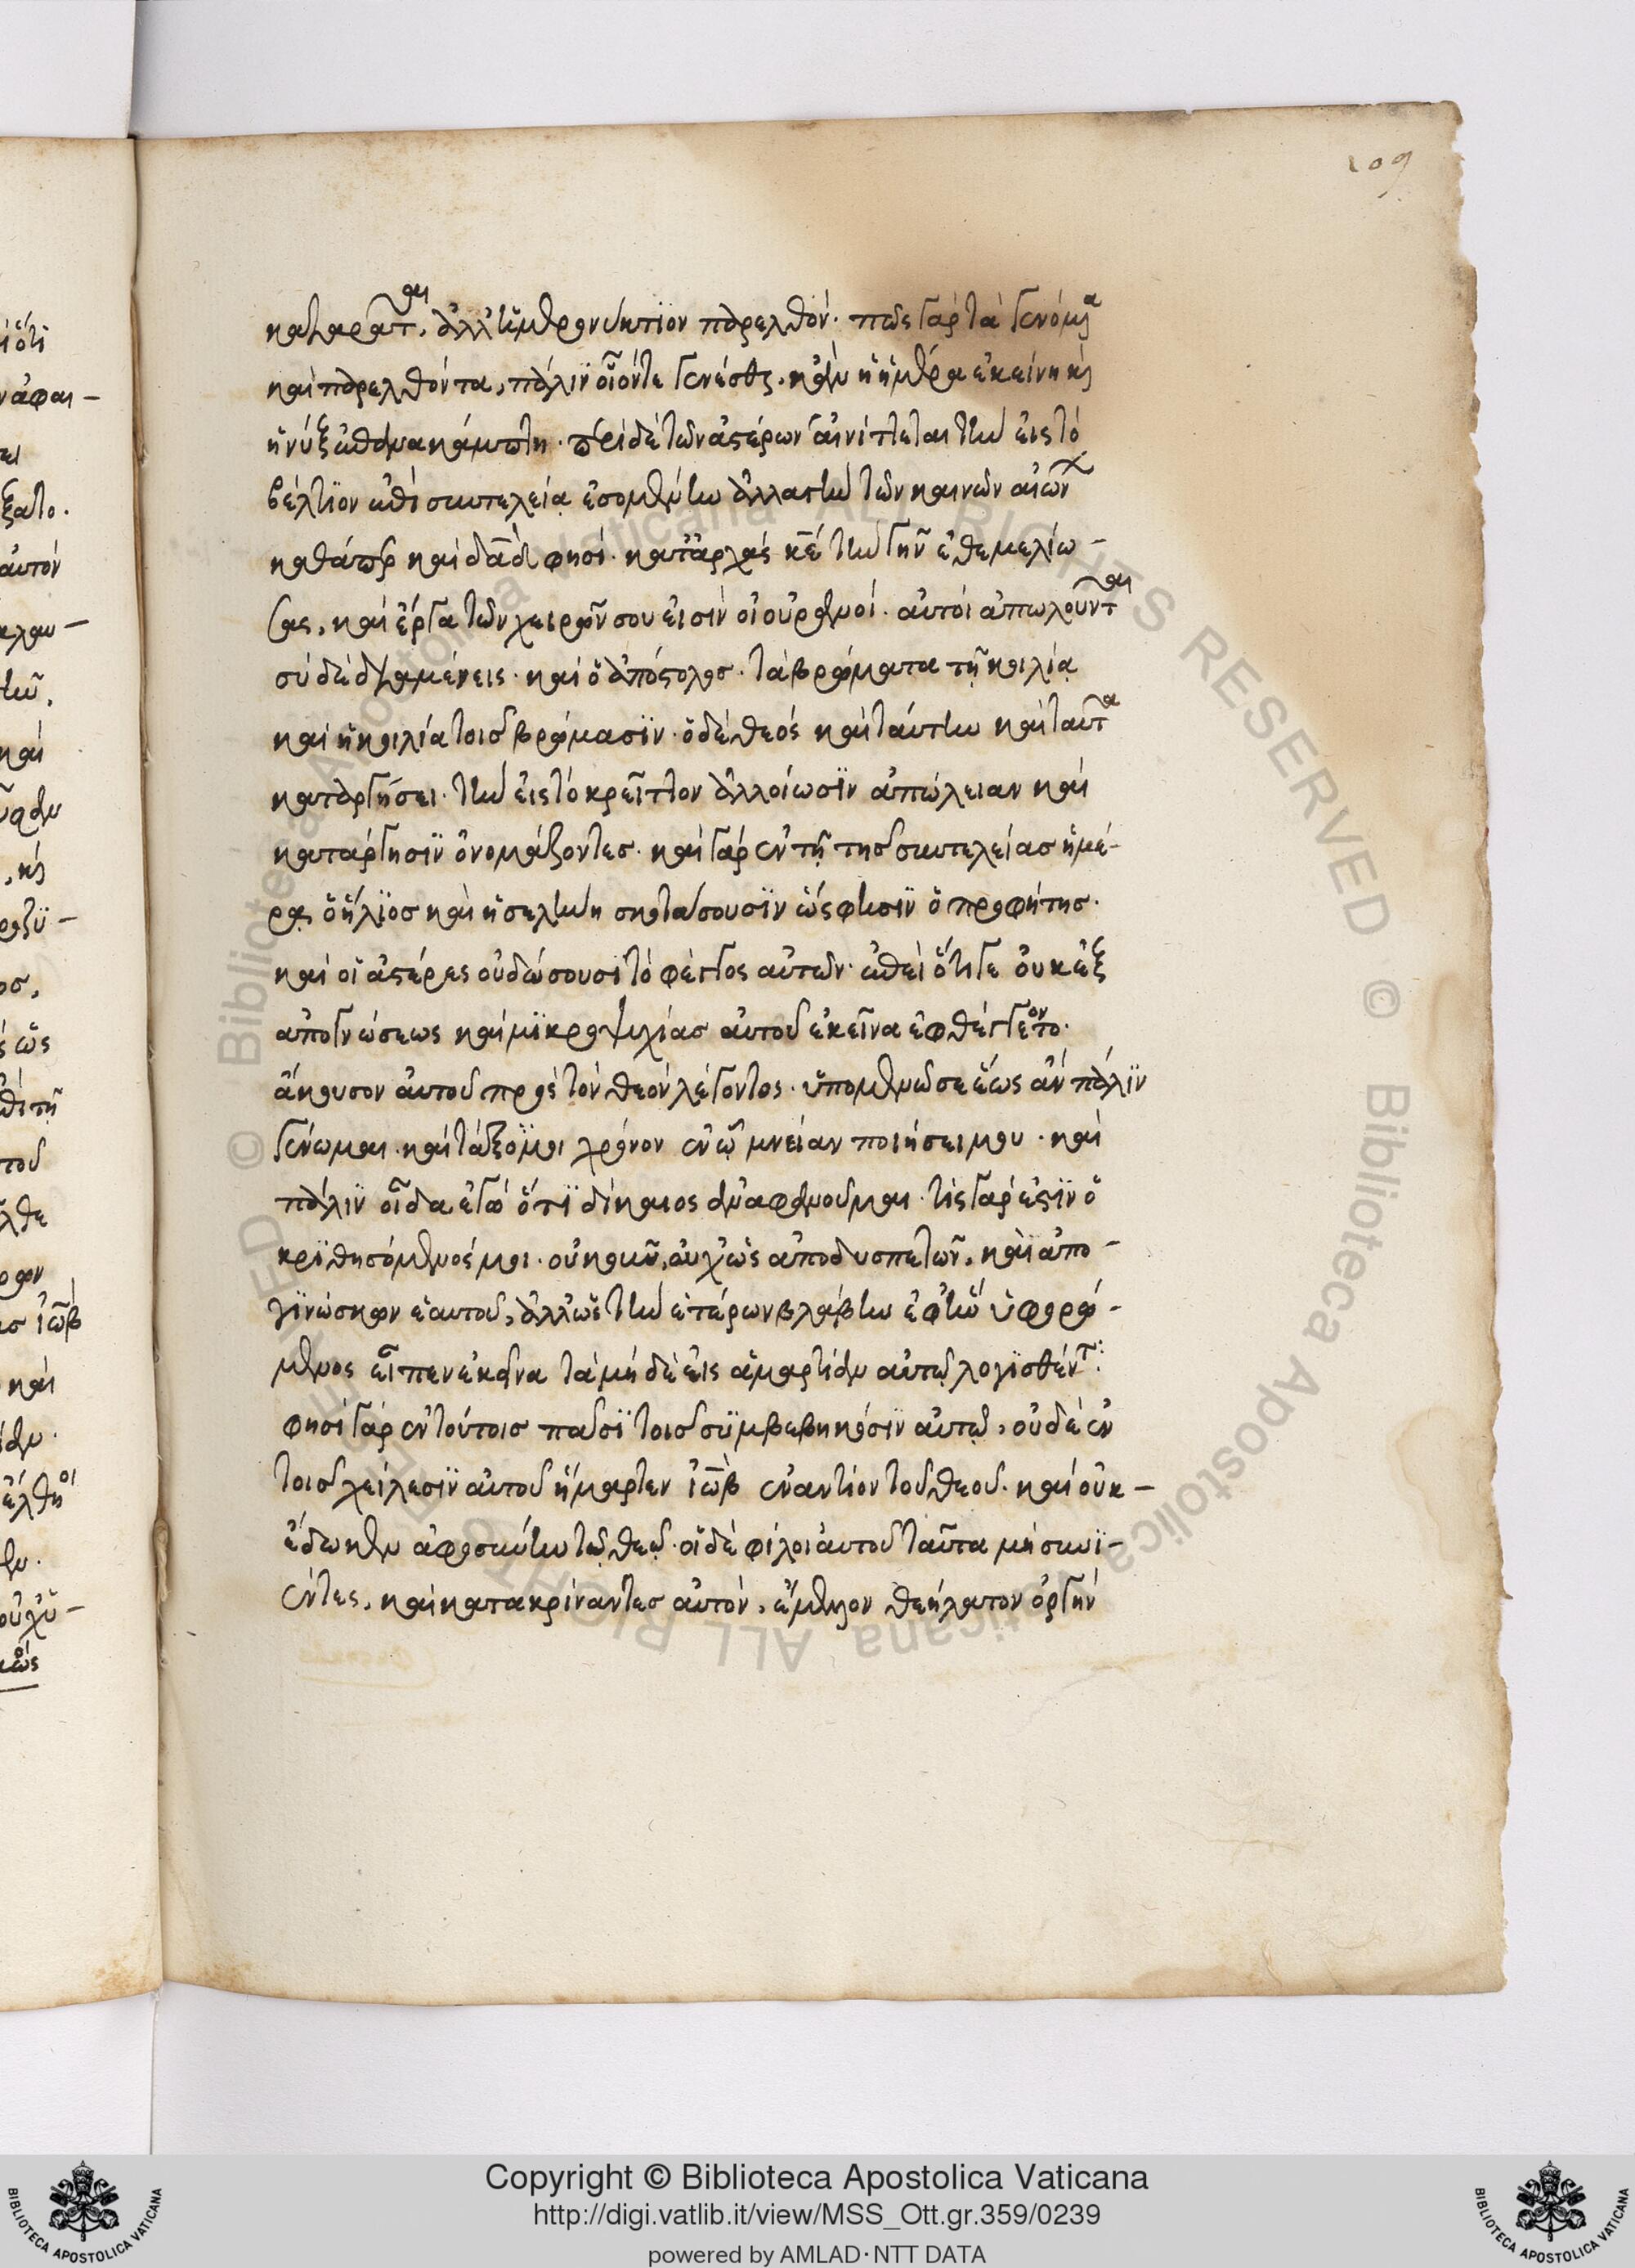 109
καταρᾶται, ἀλλ' εἰ μὴ πρὸς νήπιον παρελθόν· πῶς γὰρ τὰ γενόμενα
καὶ παρελθόντα, πάλιν οἷόν τε γενέσθαι, κἂν ἡ ἡμέρα ἐκείνη καὶ
ἡ νὺξ ἐπανακάμπτη· περὶ δὲ τῶν ἀστέρων αἰνίττεται τὴν εἰς τὸ
βέλτιον ἐπὶ συντελεία ἐσομένην ἀλλαγὴν τῶν καινῶν αἰώνων
καθάπερ καὶ δαδ φησί· κατ' ἀρχὰς κε τὴν γῆν ἐθεμελίω-
σας, καὶ ἔργα τῶν χειρῶν σου εἰσὶν οἱ οὐρανοί· αὐτοὶ ἀπωλοῦνται
σὺ δὲ διαμένεις· καὶ ὁ ἀπόστολος· τὰ βρώματα τῇ κοιλίᾳ
καὶ ἡ κοιλία τοῖς βρώμασϊν· ὁ δὲ θεὸς καὶ ταύτην καὶ ταῦτα
καταργήσει· τὴν εἰς τὸ κρεῖττον ἀλλοίωσϊν ἀπώλειαν καὶ
κατάργησϊν ὀνομάζοντες· καὶ γὰρ ἐν τῇ τῆς συντελείας ἡμέ-
ρᾳ ὁ ἥλϊος καὶ ἡ σελήνη σκοτάσουσϊν ὥς φησϊν ὁ προφήτης·
καὶ οἱ ἀστέρες οὐ δώσουσϊ τὸ φέγγος αὐτῶν· ἐπεὶ ὅτι γε οὐκ ἐξ
ἀπογνώσεως καὶ μϊκροψυχίας αὐτοῦ ἐκεῖνα ἐφθέγγετο·
ἄκουσον αὐτοῦ πρὸς τὸν θεὸν λέγοντος· ὑπομενῶ σε ἕως ἂν πάλϊν
γένωμαι· καὶ τάξῃ μοι χρόνον ἐν ᾧ μνείαν ποιήσει μου· καὶ
πάλϊν οἶδα ἐγὼ ὅτϊ δίκαιος ἀναφανοῦμαι· τίς γάρ ἐστϊν ὁ
κρϊθησόμενός μοι· οὐκοῦν, οὐχ ὡς ἀποδυσπετῶν, καὶ ἀπο-
γϊνώσκων ἑαυτοῦ, ἀλλ' ὡς τὴν ἑτέρων βλάβην ἐφ' ἣν ὑφορώ-
μενος εἶπεν ἐκεῖνα τὰ μὴ δὲ εἰς ἁμαρτίαν αὐτῷ λογϊσθέντα:
φησὶ γὰρ ἐν τούτοις πᾶσϊ τοῖς συμβεβηκόσϊν αὐτῷ, οὐδὲ ἐν
τοῖς χείλεσϊν αὐτοῦ ἥμαρτεν ἰὼβ ἐναντίον τοῦ θεοῦ· καὶ οὐκ-
ἔδωκεν ἀφροσύνην τῷ θεῷ· οἱ δὲ φίλοι αὐτοῦ ταῦτα μὴ συνϊ-
έντες, καὶ κατακρίναντες αὐτόν, ἔμελλον θεήλατον ὀργὴν
Copyright © Biblioteca Apostolica Vaticana
http://digi.vatlib.it/view/MSS_Ott.gr.359/0239
powered by AMLAD·NTT DATA